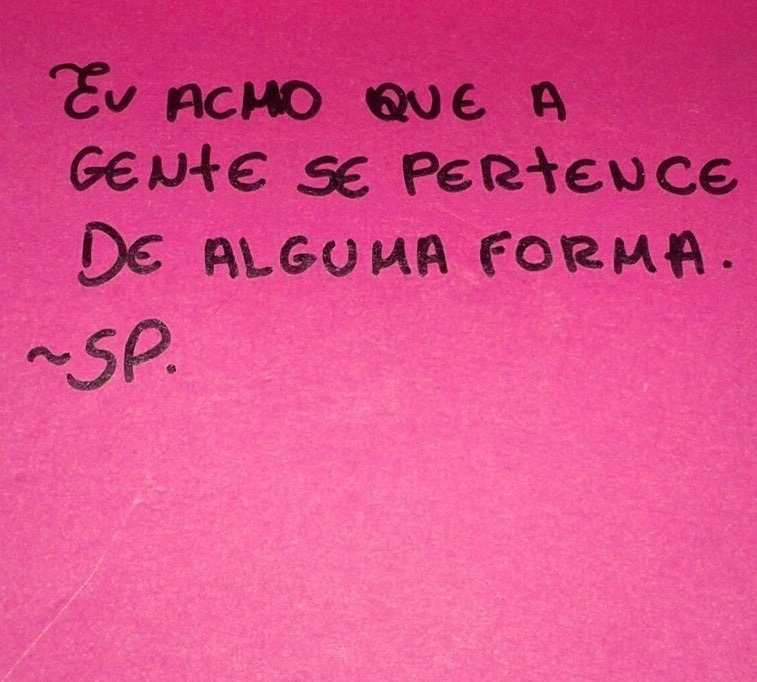 Eu ACHO QUE A
GENTE SE PERTENCE
DE ALGUMA FORMA.
~SP.